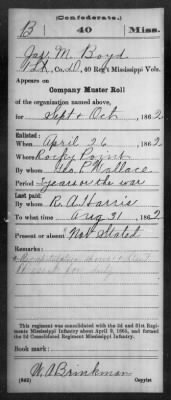 (Confederate.)
B | 40 | Miss.
Jas. M. Boyd
Co. D, 40 Reg't Mississippi Vols.
Appears on
Company Muster Roll
of the organization named above,
for Sept & Oct, 1862
Enlisted:
When April 26, 1862
Where Rocky Point
By whom Geo. P. Wallace
Period 3 years or the war
Last paid:
By whom R. A. Harris
To what time Aug 31, 1862
Present or absent Not Stated
Remarks:
Present for duty
This regiment was consolidated with the 3d and 31st Regiments Mississippi Infantry about April 9, 1865, and formed the 3d Consolidated Regiment Mississippi Infantry.
Book mark:
W. A. Brinkman
(642) Copyist.